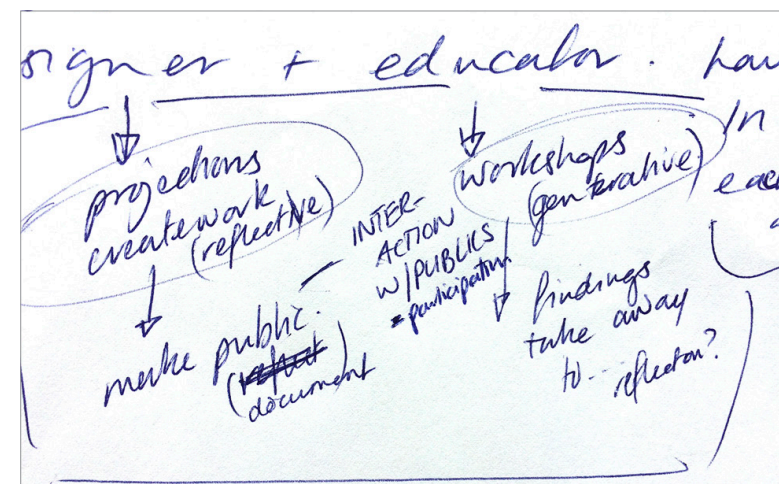 signer + educator. how
In
projections
creatework
(reflective)
workshops
(generative)
INTER-
ACTION
W/PUBLICS
= participation
make public.
document
findings
take away
to... reflection?